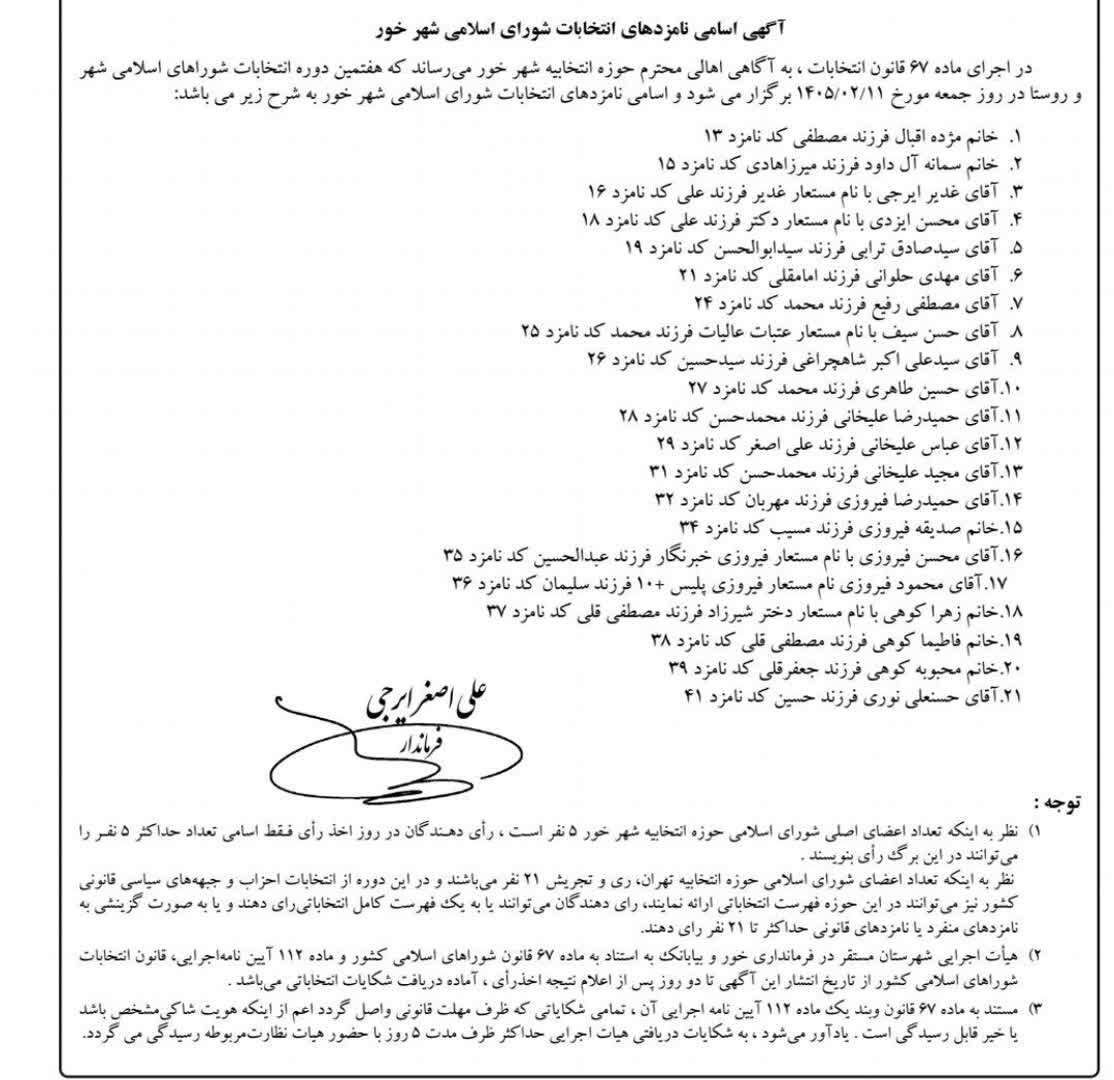 آگهی اسامی نامزدهای انتخابات شورای اسلامی شهر خور
در اجرای ماده ۶۷ قانون انتخابات ، به آگاهی اهالی محترم حوزه انتخابیه شهر خور می‌رساند که هفتمین دوره انتخابات شوراهای اسلامی شهر
و روستا در روز جمعه مورخ ۱۴۰۵/۰۲/۱۱ برگزار می شود و اسامی نامزدهای انتخابات شورای اسلامی شهر خور به شرح زیر می باشد:
۱. خانم مژده اقبال فرزند مصطفی کد نامزد ۱۳
۲. خانم سمانه آل داود فرزند میرزاهادی کد نامزد ۱۵
۳. آقای غدیر ایرجی با نام مستعار غدیر فرزند علی کد نامزد ۱۶
۴. آقای محسن ایزدی با نام مستعار دکتر فرزند علی کد نامزد ۱۸
۵. آقای سیدصادق ترابی فرزند سیدابوالحسن کد نامزد ۱۹
۶. آقای مهدی حلوانی فرزند امامقلی کد نامزد ۲۱
۷. آقای مصطفی رفیع فرزند محمد کد نامزد ۲۴
۸. آقای حسن سیف با نام مستعار عتبات عالیات فرزند محمد کد نامزد ۲۵
۹. آقای سیدعلی اکبر شاهچراغی فرزند سیدحسین کد نامزد ۲۶
۱۰.آقای حسین طاهری فرزند محمد کد نامزد ۲۷
۱۱.آقای حمیدرضا علیخانی فرزند محمدحسن کد نامزد ۲۸
۱۲.آقای عباس علیخانی فرزند علی اصغر کد نامزد ۲۹
۱۳.آقای مجید علیخانی فرزند محمدحسن کد نامزد ۳۱
۱۴.آقای حمیدرضا فیروزی فرزند مهربان کد نامزد ۳۲
۱۵.خانم صدیقه فیروزی فرزند مسیب کد نامزد ۳۴
۱۶.آقای محسن فیروزی با نام مستعار فیروزی خبرنگار فرزند عبدالحسین کد نامزد ۳۵
۱۷.آقای محمود فیروزی نام مستعار فیروزی پلیس +۱۰ فرزند سلیمان کد نامزد ۳۶
۱۸.خانم زهرا کوهی با نام مستعار دختر شیرزاد فرزند مصطفی قلی کد نامزد ۳۷
۱۹.خانم فاطیما کوهی فرزند مصطفی قلی کد نامزد ۳۸
۲۰.خانم محبوبه کوهی فرزند جعفرقلی کد نامزد ۳۹
۲۱.آقای حسنعلی نوری فرزند حسین کد نامزد ۴۱
علی اصغر ایرجی
فرماندار
توجه :
۱) نظر به اینکه تعداد اعضای اصلی شورای اسلامی حوزه انتخابیه شهر خور ۵ نفر است ، رأی دهندگان در روز اخذ رأی فقط اسامی تعداد حداکثر ۵ نفر را
می‌توانند در این برگ رأی بنویسند .
نظر به اینکه تعداد اعضای شورای اسلامی حوزه انتخابیه تهران، ری و تجریش ۲۱ نفر می‌باشند و در این دوره از انتخابات احزاب و جبهه‌های سیاسی قانونی
کشور نیز می‌توانند در این حوزه فهرست انتخاباتی ارائه نمایند، رای دهندگان می‌توانند یا به یک فهرست کامل انتخاباتی‌رای دهند و یا به صورت گزینشی به
نامزدهای منفرد یا نامزدهای قانونی حداکثر تا ۲۱ نفر رای دهند.
۲) هیأت اجرایی شهرستان مستقر در فرمانداری خور و بیابانک به استناد به ماده ۶۷ قانون شوراهای اسلامی کشور و ماده ۱۱۲ آیین نامه‌اجرایی، قانون انتخابات
شوراهای اسلامی کشور از تاریخ انتشار این آگهی تا دو روز پس از اعلام نتیجه اخذرأی ، آماده دریافت شکایات انتخاباتی می‌باشد .
۳) مستند به ماده ۶۷ قانون وبند یک ماده ۱۱۲ آیین نامه اجرایی آن ، تمامی شکایاتی که ظرف مهلت قانونی واصل گردد اعم از اینکه هویت شاکی‌مشخص باشد
یا خیر قابل رسیدگی است . یادآور می‌شود ، به شکایات دریافتی هیات اجرایی حداکثر ظرف مدت ۵ روز با حضور هیات نظارت‌مربوطه رسیدگی می گردد.